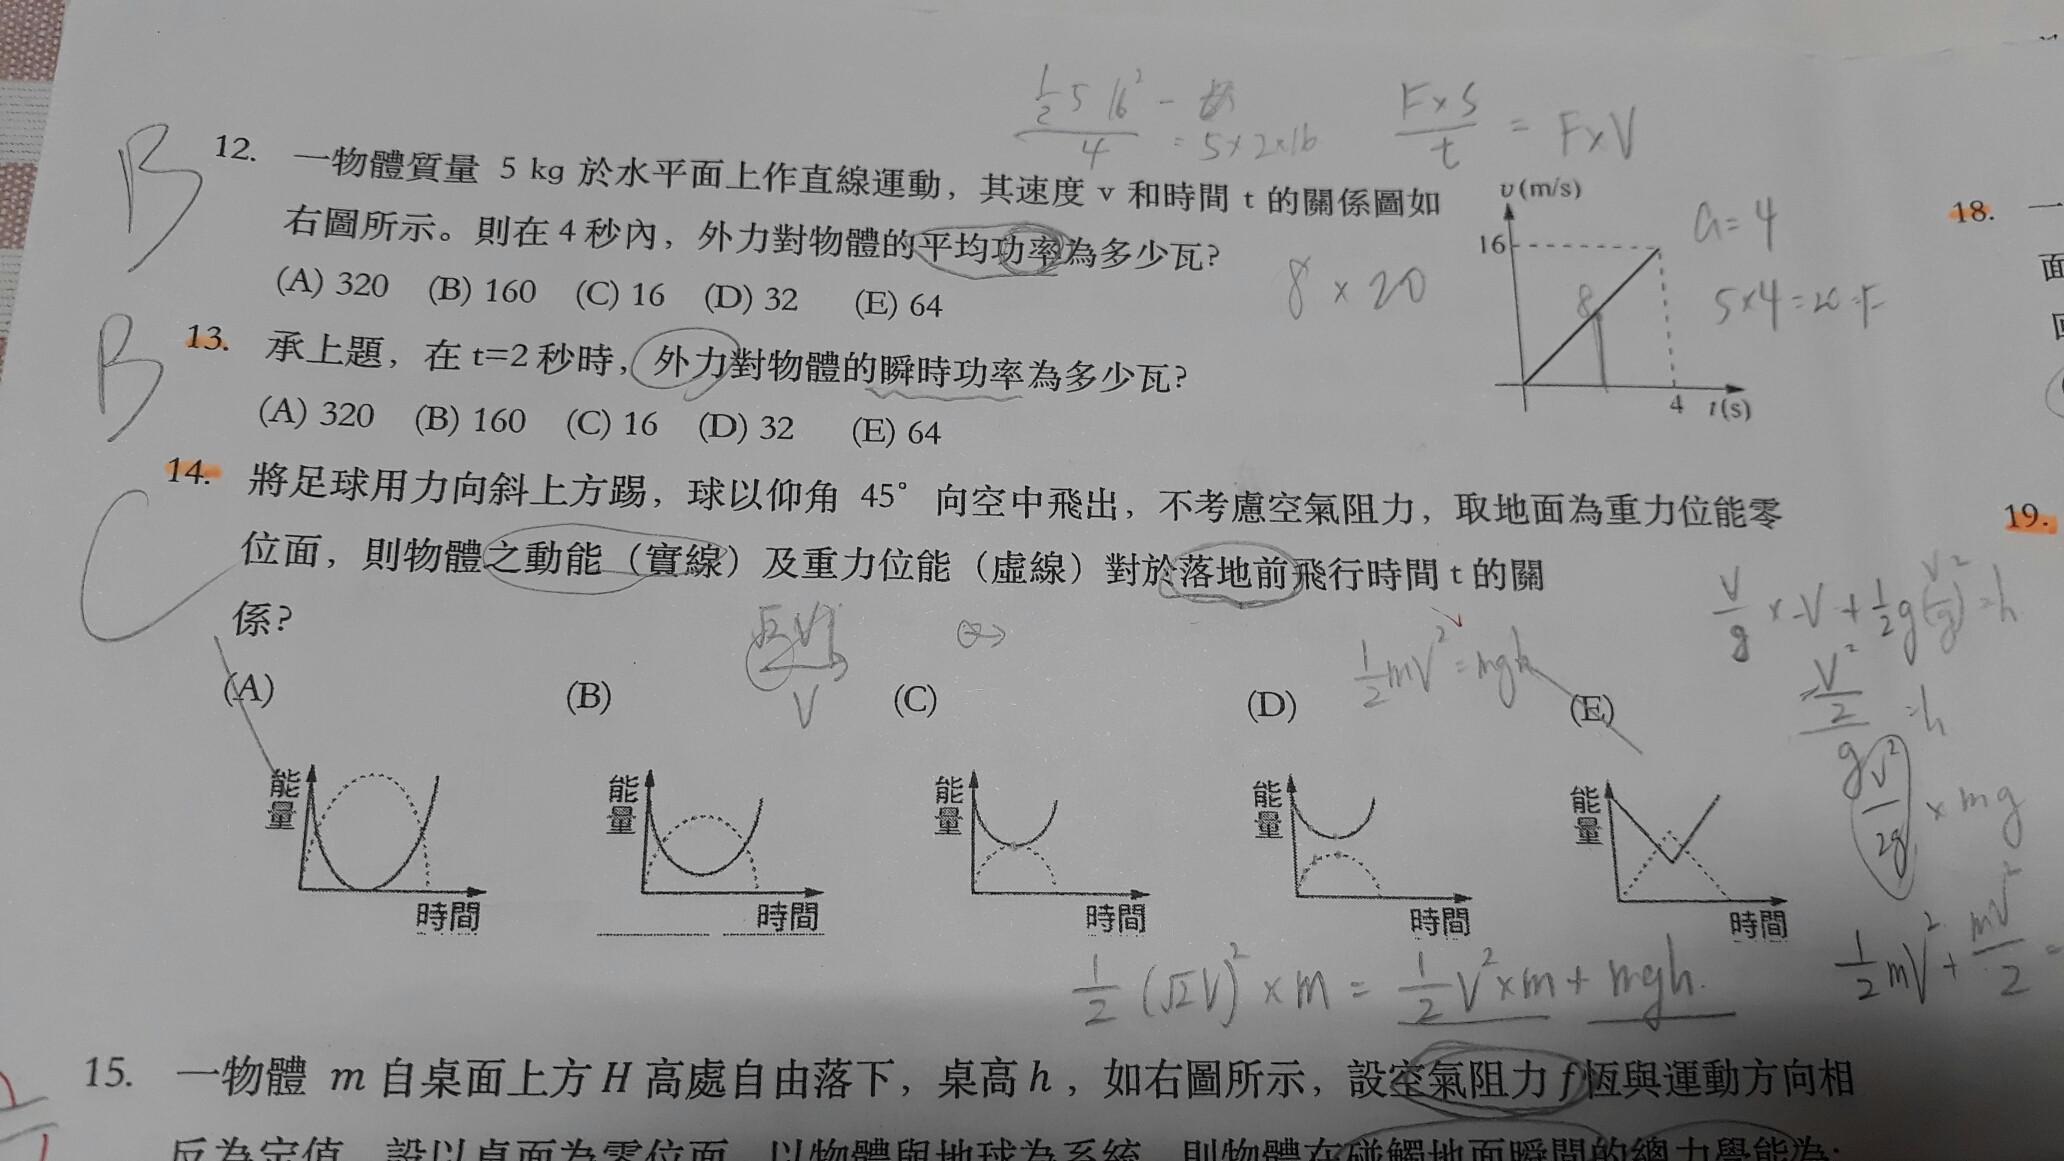 ½ 5 16² -
4
= 5×2×16
F×S
t
= F×V
B
12. 一物體質量 5 kg 於水平面上作直線運動，其速度 v 和時間 t 的關係圖如
右圖所示。則在 4 秒內，外力對物體的平均功率為多少瓦?
(A) 320 (B) 160 (C) 16 (D) 32 (E) 64
8 × 20
υ(m/s)
16
8
4 t(s)
a=4
5×4=20=F
B
13. 承上題，在 t=2 秒時，外力對物體的瞬時功率為多少瓦?
(A) 320 (B) 160 (C) 16 (D) 32 (E) 64
C
14. 將足球用力向斜上方踢，球以仰角 45° 向空中飛出，不考慮空氣阻力，取地面為重力位能零
位面，則物體之動能（實線）及重力位能（虛線）對於落地前飛行時間 t 的關
係?
√2 V
V
½mV² = mgh
(A) (B) (C) (D) (E)
能量 時間
能量 時間
能量 時間
能量 時間
能量 時間
V/g × -V + ½g(V/g)² = h
V²/2
g
= h
V²/2g × mg
½mV² + mV²/2 =
½ (√2V)² × m = ½V²×m + mgh.
15. 一物體 m 自桌面上方 H 高處自由落下，桌高 h，如右圖所示，設空氣阻力 f 恆與運動方向相
反為定值，設以桌面為零位面，以物體與地球為系統，則物體在碰觸地面瞬間的總力學能為:
18. 一
面
19.